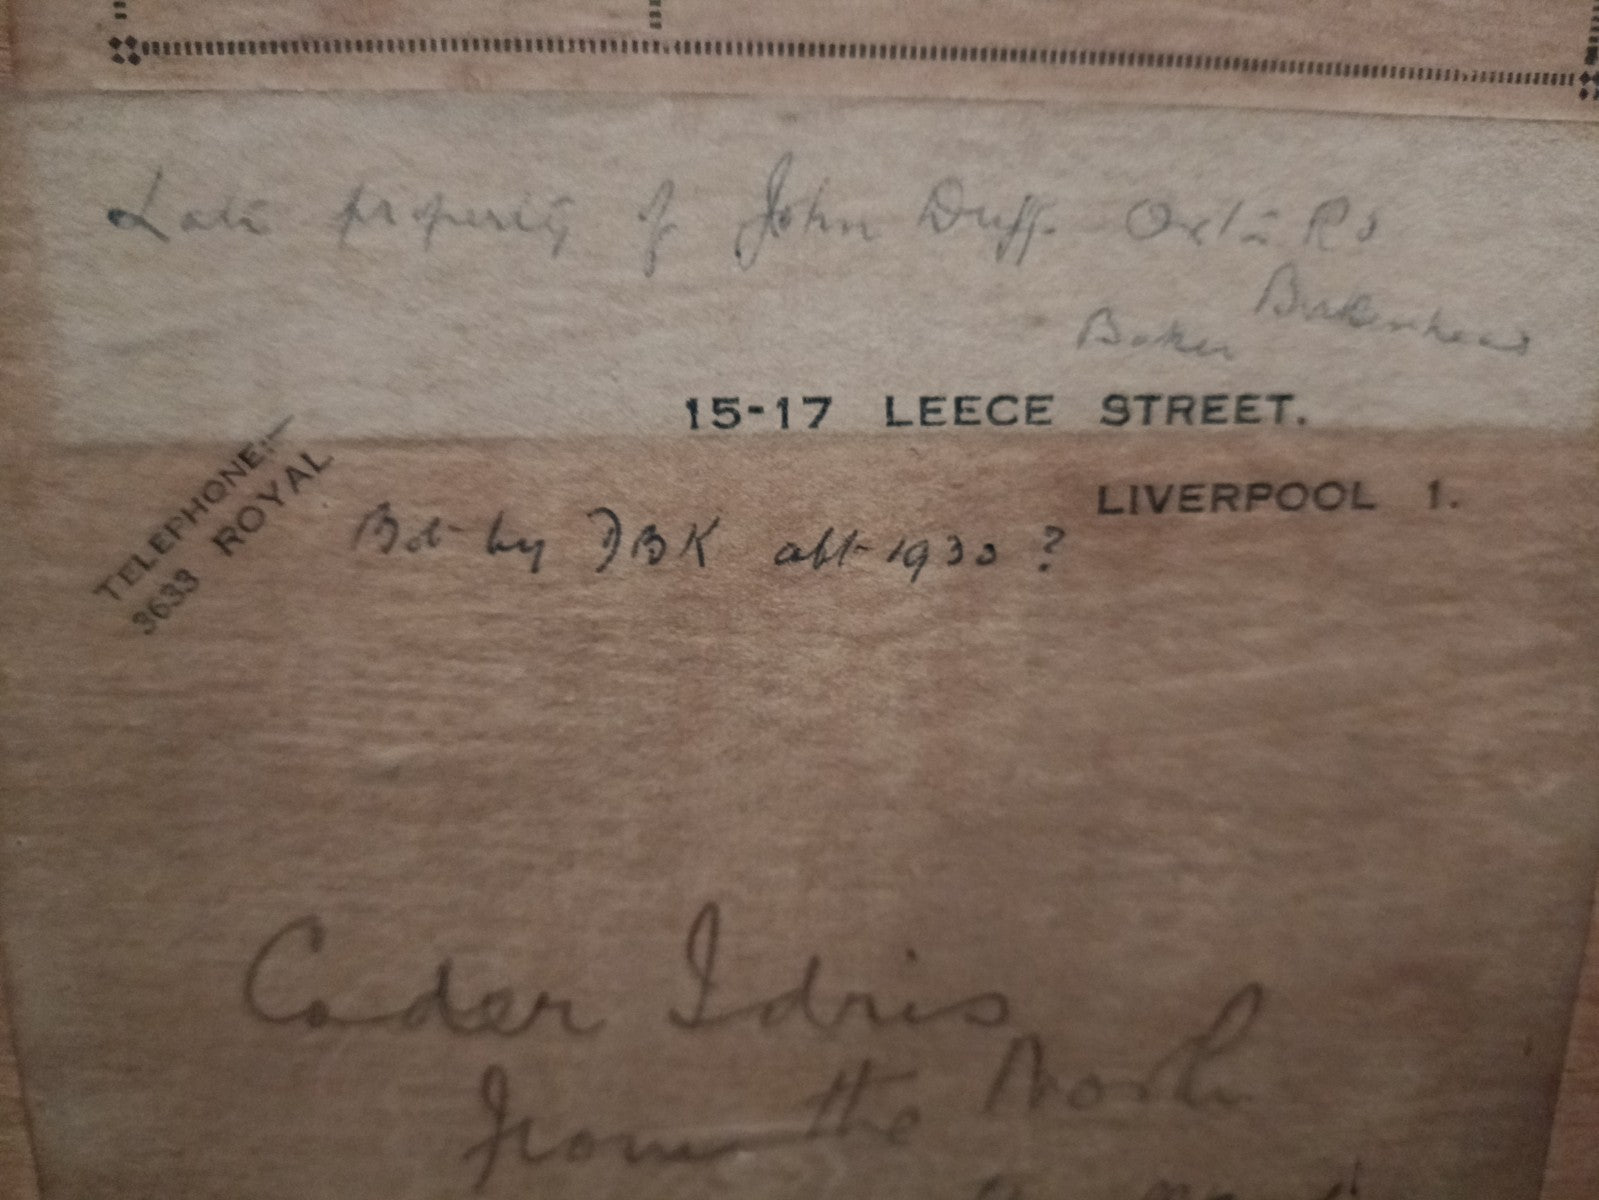 Late property of John Duff. Oxton Rd
Birkenhead
Baker
15-17 LEECE STREET.
LIVERPOOL 1.
TELEPHONE:-
3633 ROYAL
Bot by DBK abt 1930 ?
Cader Idris
from the North